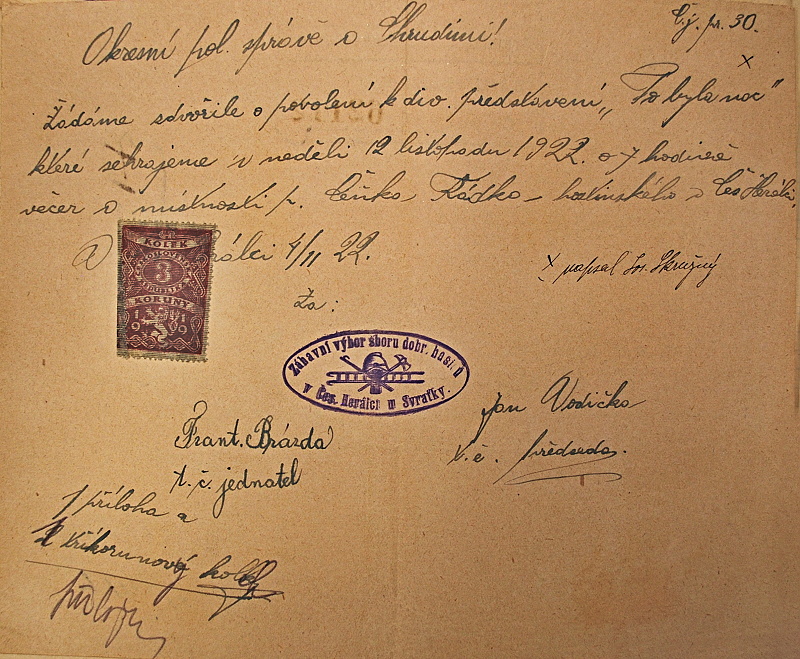 Č.j. pr. 30.
Okresní pol. správě v Chrudimi!
x
Žádáme zdvořile o povolení k div. představení „To byla noc"
které sehrajeme v neděli 12 listopadu 1922. o 7 hodině
večer v místnosti p. Čeňka Fádka - hostinského v Čes Herálci.
V Herálci 4/11 22.
x napsal Jos. Skružný
KOLEK
ČESKOSLOVENSKÁ
3
REPUBLIKA
KORUNY
1919
Za:
Zábavní výbor sboru dobr. hasičů
v Čes. Herálci u Svratky.
Frant. Brázda
t. č. jednatel
Jan Vodička
t. č. předseda.
1 příloha a
1 tříkorunový kolek